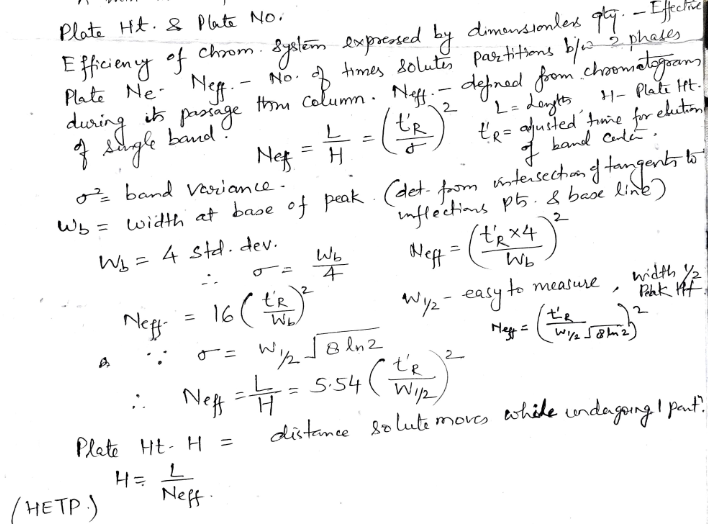 Plate Ht. & Plate No.
Efficieny of chrom. system expressed by dimensionless qty. - Effective
Plate Ne. Neff. - No. of times solutes partitions b/w 2 phases
during its passage thru column. Neff. - defined from chromatogram
of single band. L = Length, H - Plate Ht.
Neff = L/H = (t'R/σ)² t'R = adjusted time for elution
of band center.
σ² = band variance.
Wb = width at base of peak. (det. from intersection of tangents to
inflections pts. & base line)
Wb = 4 std. dev. Neff = (t'R×4/Wb)²
∴ σ = Wb/4
Neff = 16 (t'R/Wb)² W1/2 - easy to measure, width 1/2
Peak Ht.
∵ σ = W1/2 √8 ln2 Neff = (t'R/W1/2 √8 ln2)²
∴ Neff = L/H = 5.54 (t'R/W1/2)²
Plate Ht- H = distance solute moves while undergoing 1 partⁿ.
H = L/Neff.
(HETP.)